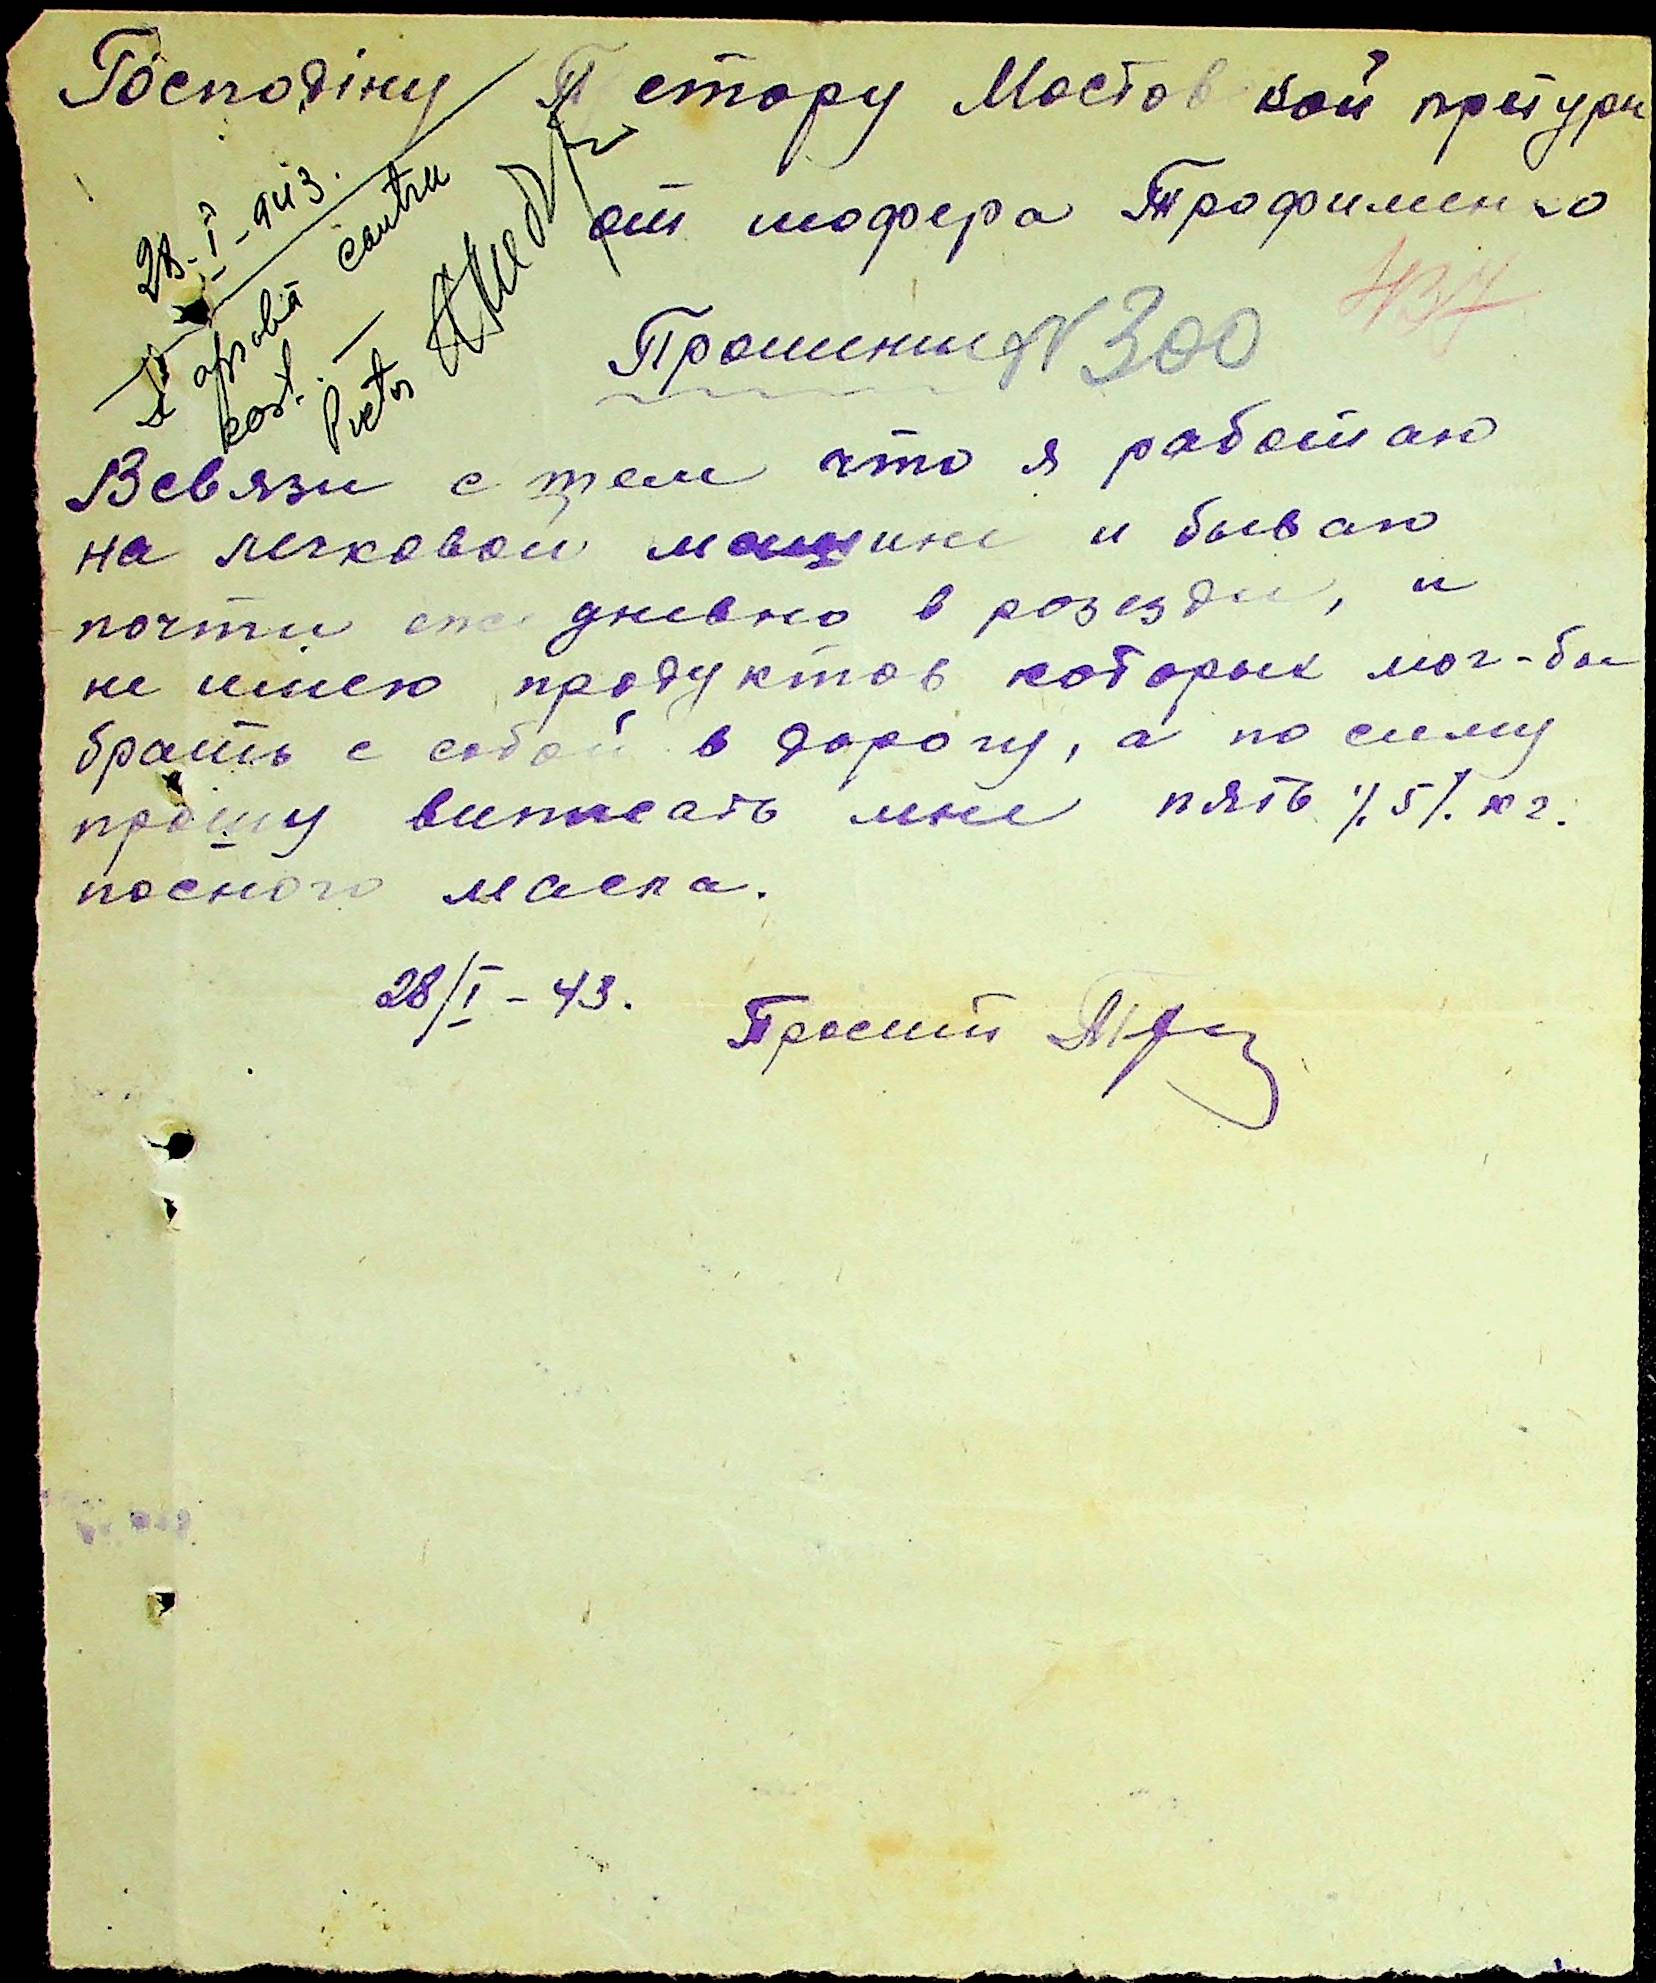 Господіну П стору Мостов кой претури
от шофера Трофименко
28-I-943.
Se aprobă contra
cost.
Pretor
Прошение N 300
Всвязи с тем что я работаю
на легковой машине и бываю
почти еже дневно в розезди, и
не имею продуктов которых мог-бы
брать с собой в дорогу, а по сему
прошу виписать мне пять /.5/. кг.
посного масла.
28/I-43.
Просит